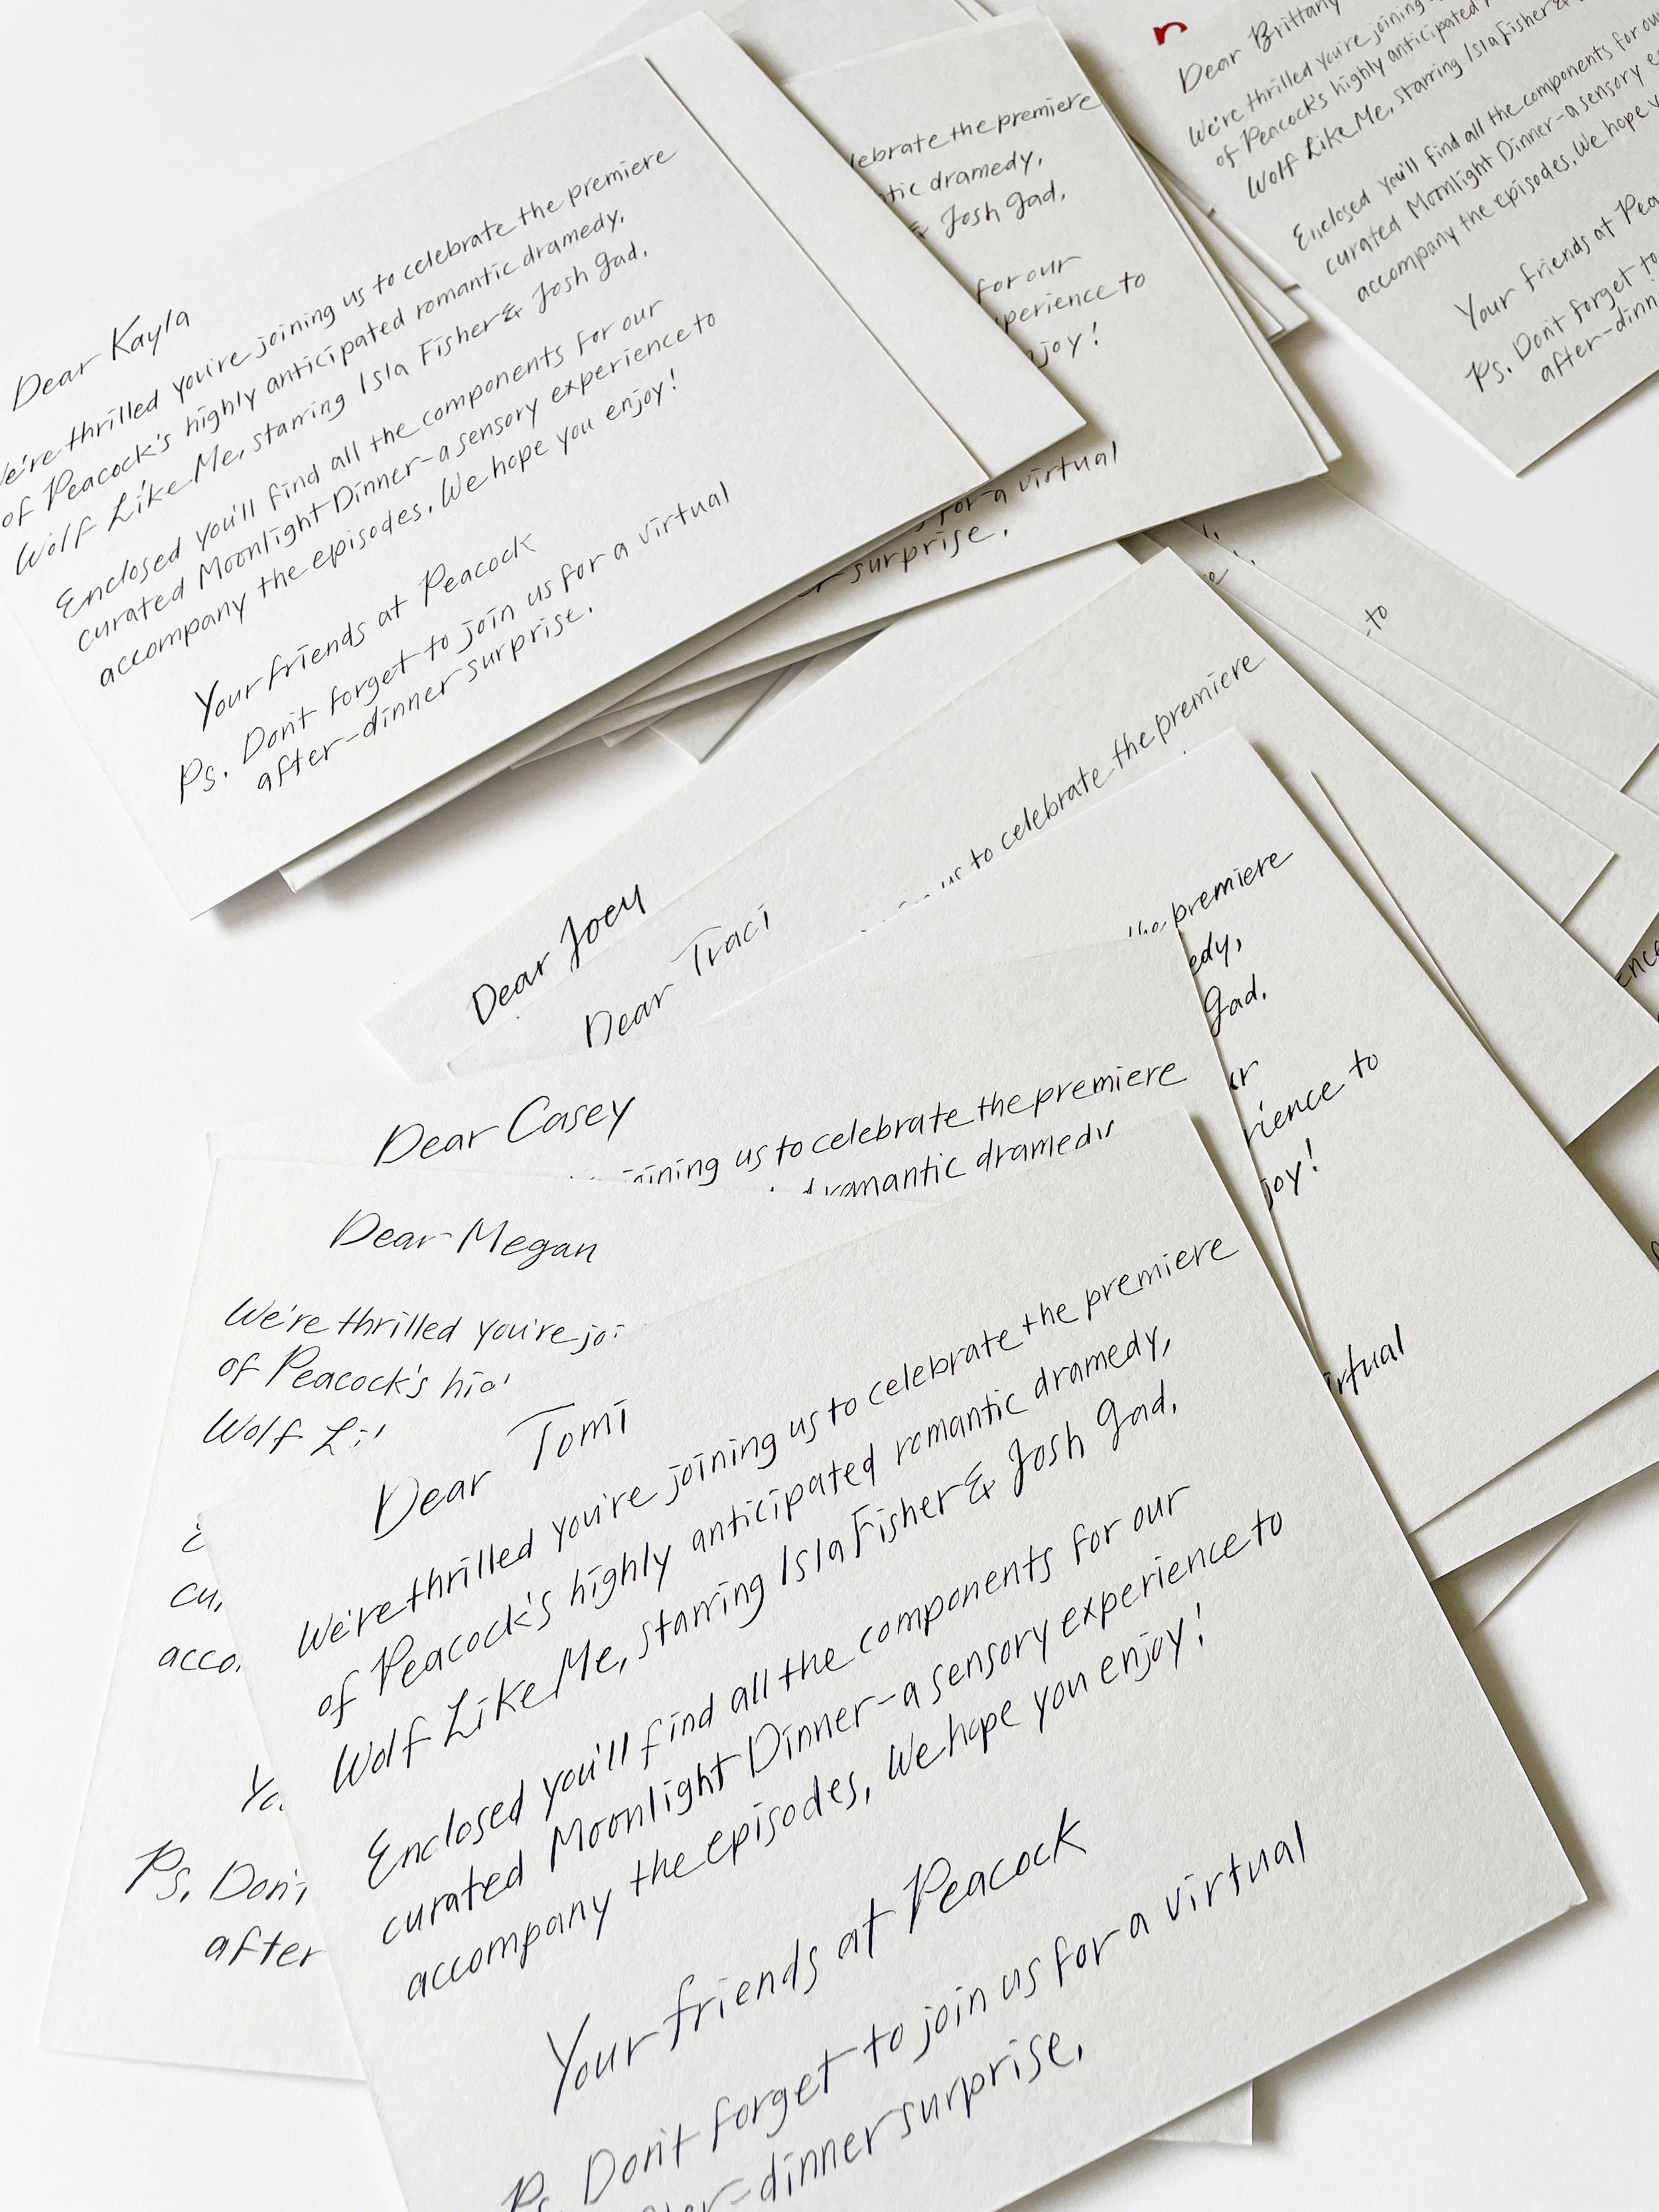 Dear Kayla
We're thrilled you're joining us to celebrate the premiere
of Peacock's highly anticipated romantic dramedy,
Wolf Like Me, starring Isla Fisher & Josh Gad.
Enclosed you'll find all the components for our
curated Moonlight Dinner-a sensory experience to
accompany the episodes. We hope you enjoy!
Your friends at Peacock
Ps. Don't forget to join us for a virtual
after-dinner surprise.
the premiere
dramedy,
& Josh Gad.
for our
to
for a virtual
surprise.
Dear Brittany
We're thrilled you're joining
of Peacock's highly anticipated
Wolf Like Me, starring Isla Fisher &
Enclosed you'll find all the components for our
curated Moonlight Dinner-a sensory
accompany the episodes. We hope
Your friends at
Ps. Don't forget to
to
Dear Joey
Dear Traci
us to celebrate the premiere
premiere
Gad.
to
Dear Casey
us to celebrate the premiere
romantic
Dear Megan
We're thrilled you're
of Peacock's
Wolf
Ps.
after
Dear Tomi
We're thrilled you're joining us to celebrate the premiere
of Peacock's highly anticipated romantic dramedy,
Wolf Like Me, starring Isla Fisher & Josh Gad.
Enclosed you'll find all the components for our
curated Moonlight Dinner-a sensory experience to
accompany the episodes. We hope you enjoy!
Your friends at Peacock
Ps. Don't forget to join us for a virtual
dinner surprise.